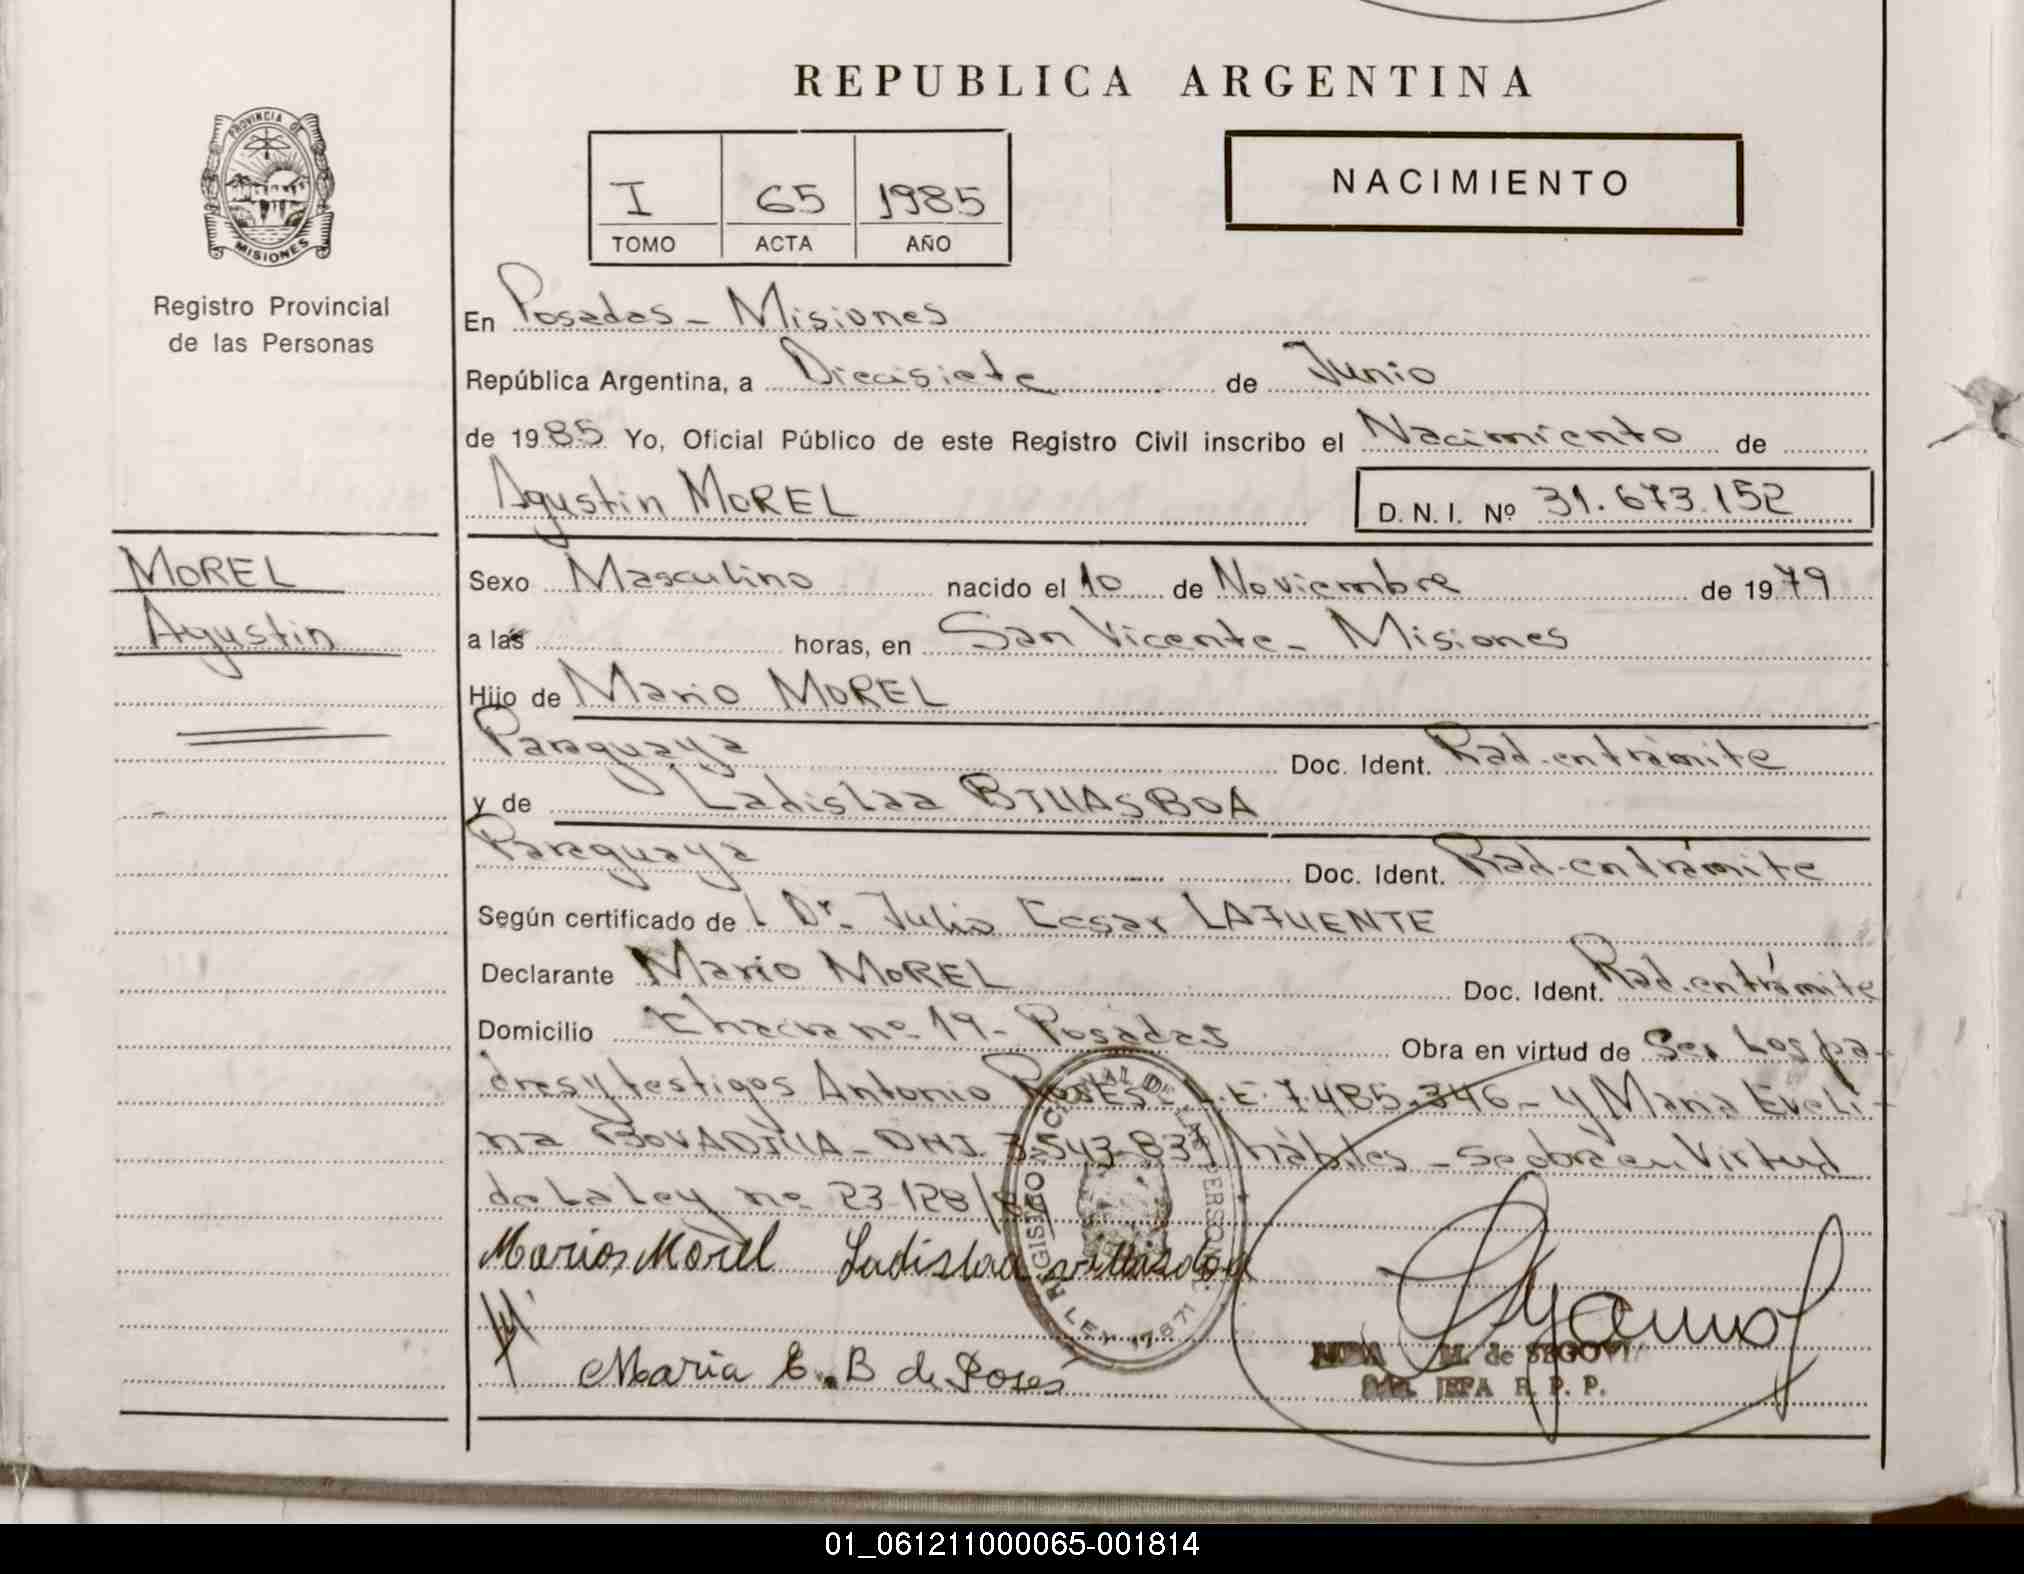 REPUBLICA ARGENTINA
PROVINCIA DE
MISIONES
Registro Provincial
de las Personas
I 65 1985
TOMO ACTA AÑO
NACIMIENTO
En Posadas - Misiones
República Argentina, a Diecisiete de Junio
de 1985 Yo, Oficial Público de este Registro Civil inscribo el Nacimiento de
Agustin MOREL D.N.I. Nº 31.673.152
MOREL
Agustin
Sexo Masculino nacido el 10 de Noviembre de 1979
a las horas, en San Vicente - Misiones
Hijo de Mario MOREL
Paraguaya Doc. Ident. Rad. en trámite
y de Ladislaa BILLASBOA
Paraguaya Doc. Ident. Rad. en trámite
Según certificado de L Dr. Julio Cesar LAFUENTE
Declarante Mario MOREL Doc. Ident. Rad. en trámite
Domicilio Chacra nº 19 - Posadas Obra en virtud de Ser Los pa-
dres y testigos Antonio L.E. 7.485.346 - y Maria Eveli-
na BOVADILLA - DNI. 3.543.837 hábiles - Se obra en Virtud
de La Ley nº 23.128/
Marios Morel Ladislaa villasboa
Maria E. B de Poses
REGISTRO NACIONAL DE LAS PERSONAS
LEY 17671
M. de SEGOVIA
JEFA R. P. P.
01_061211000065-001814